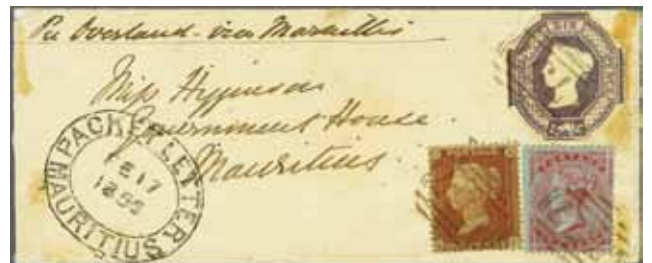 Per Overland - via Marseilles
SIX
Miss Higginson
Government House.
Mauritius.
PACKET LETTER
MAURITIUS